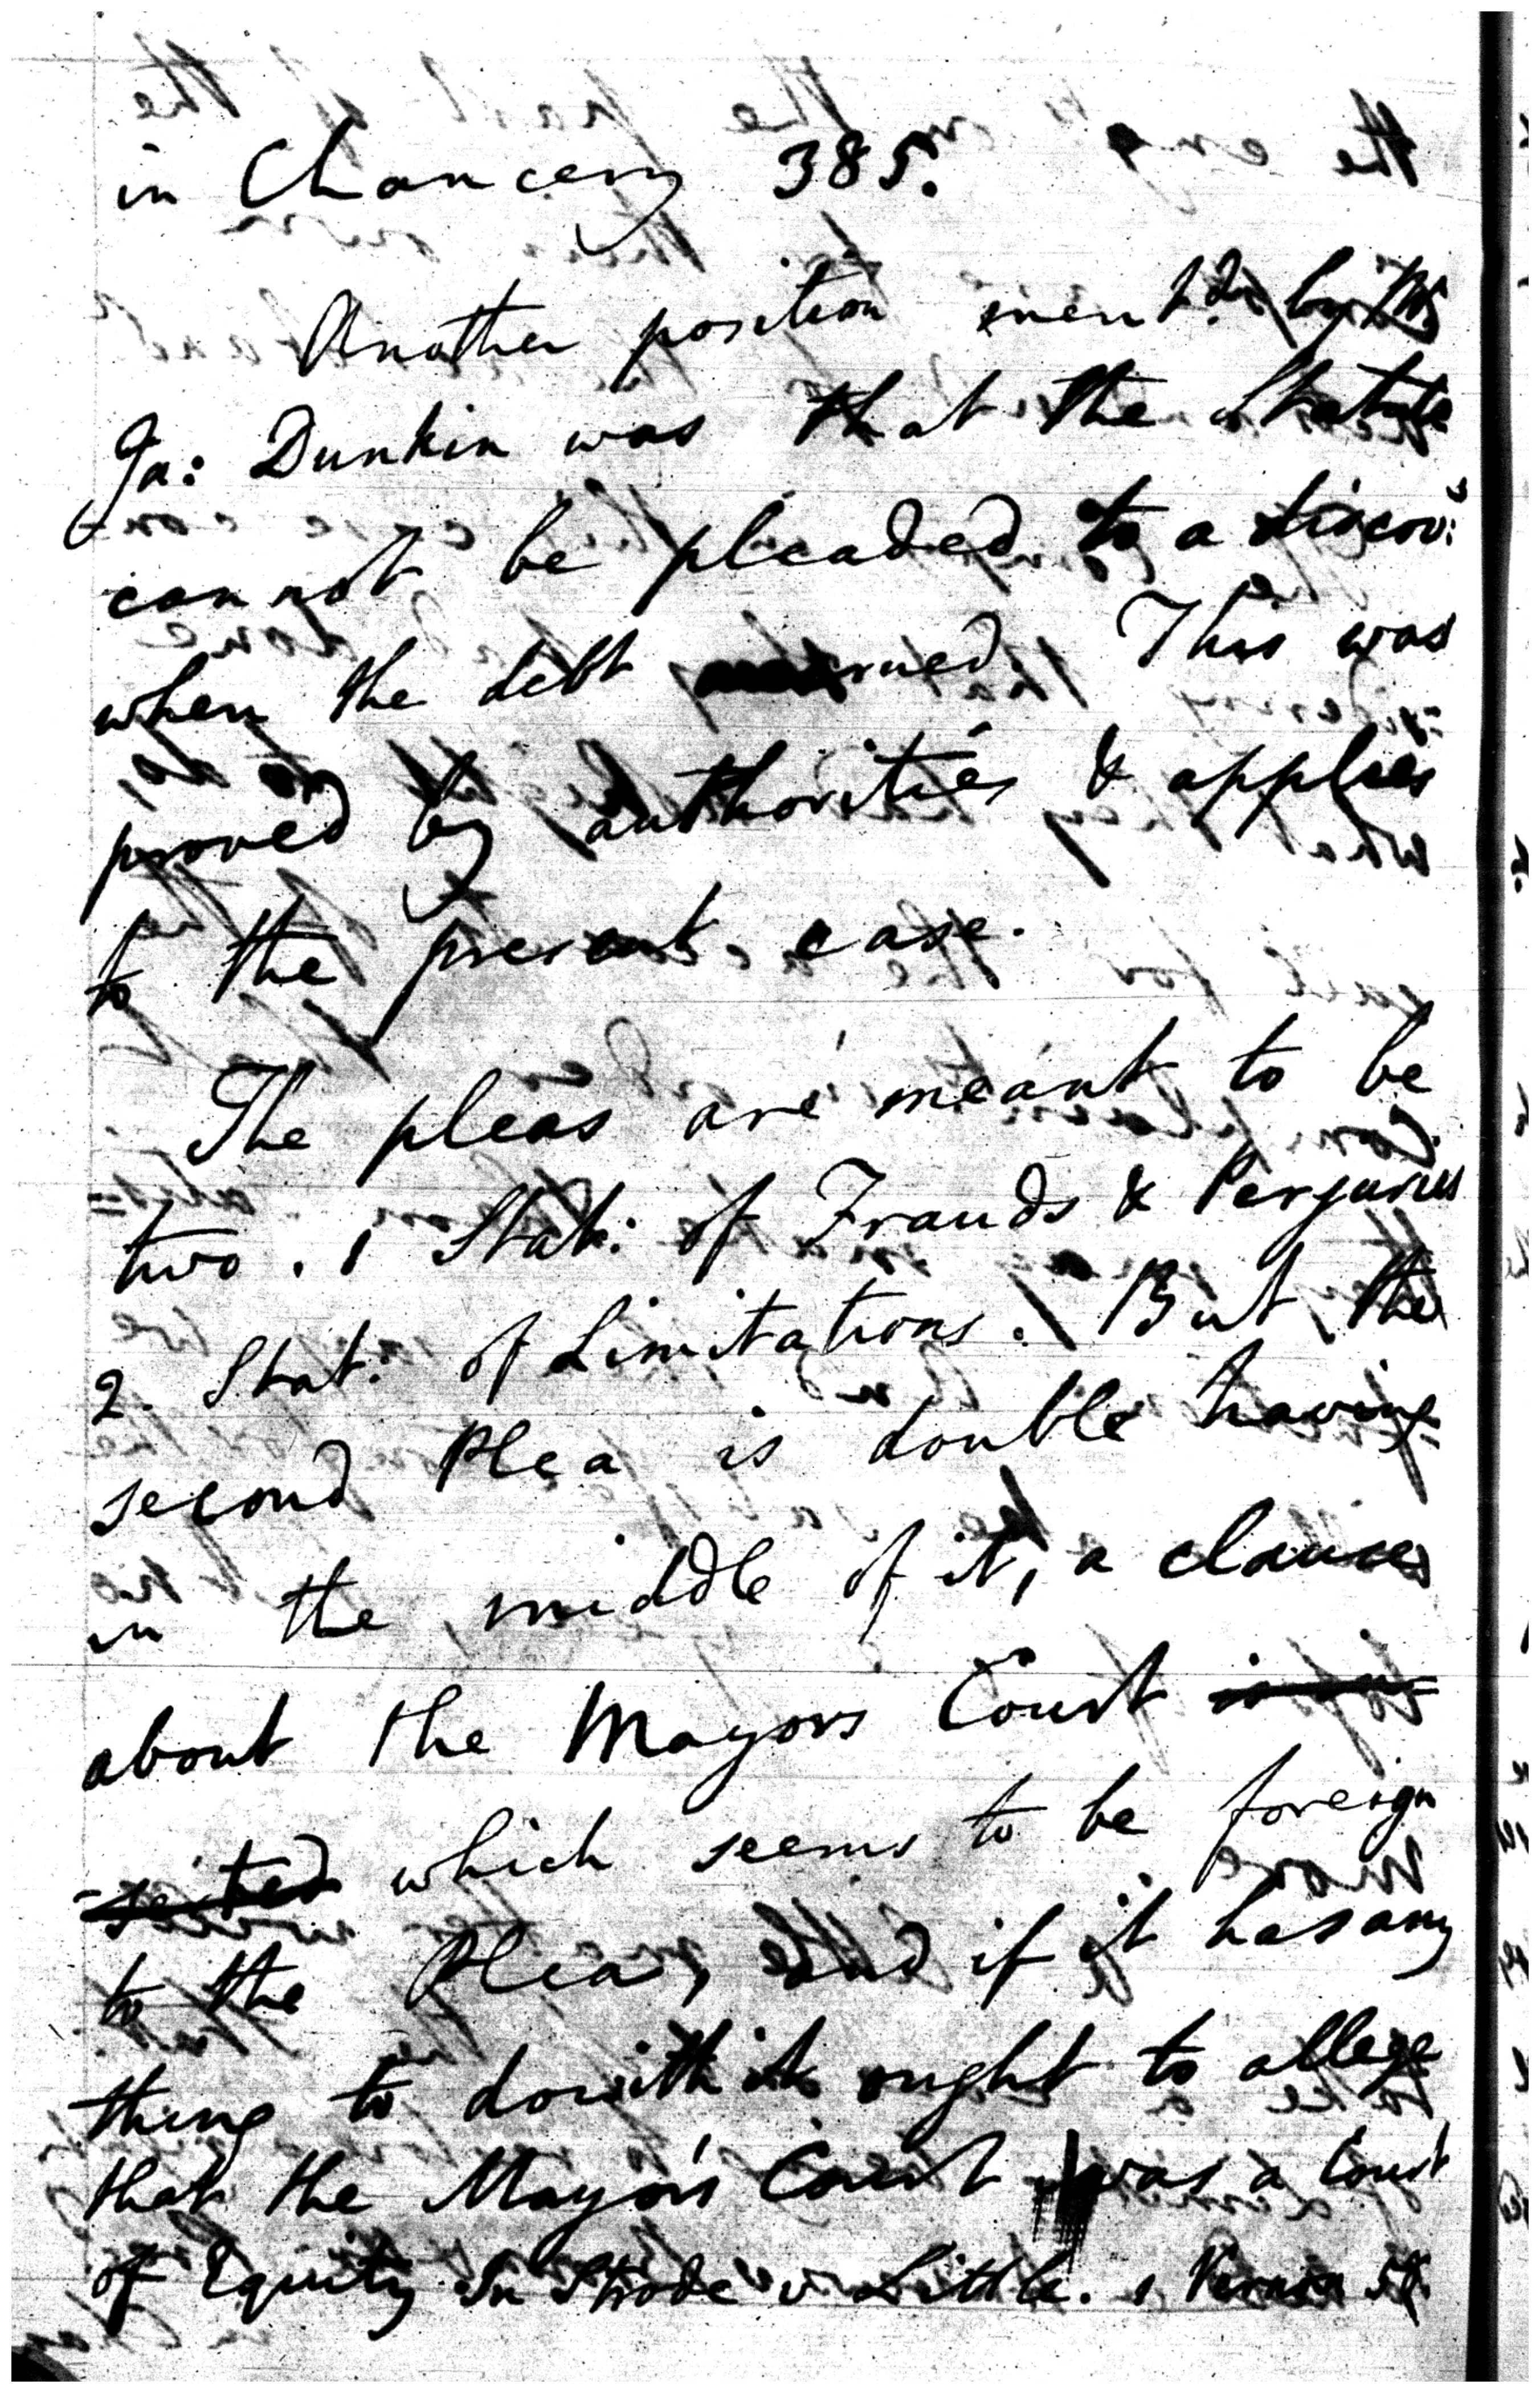 in Chancery 385.
Another position ment.d by Mr
Ja: Dunkin was that the Statute
cannot be pleaded to a discov:y
when the debt This was
proved by authorities & applies
to the present case.
The pleas are meant to be
two. 1 Stat: of Frauds & Perjuries
2. Stat. of Limitations. But the
second Plea is double having
in the middle of it, a clause
about the Mayors Court is in
-serted which seems to be foreign
to the Plea, and if it has any
thing to do with it ought to allege
that the Mayor's Court was a Court
of Equity In Strode v Little. 1 Vernon 58